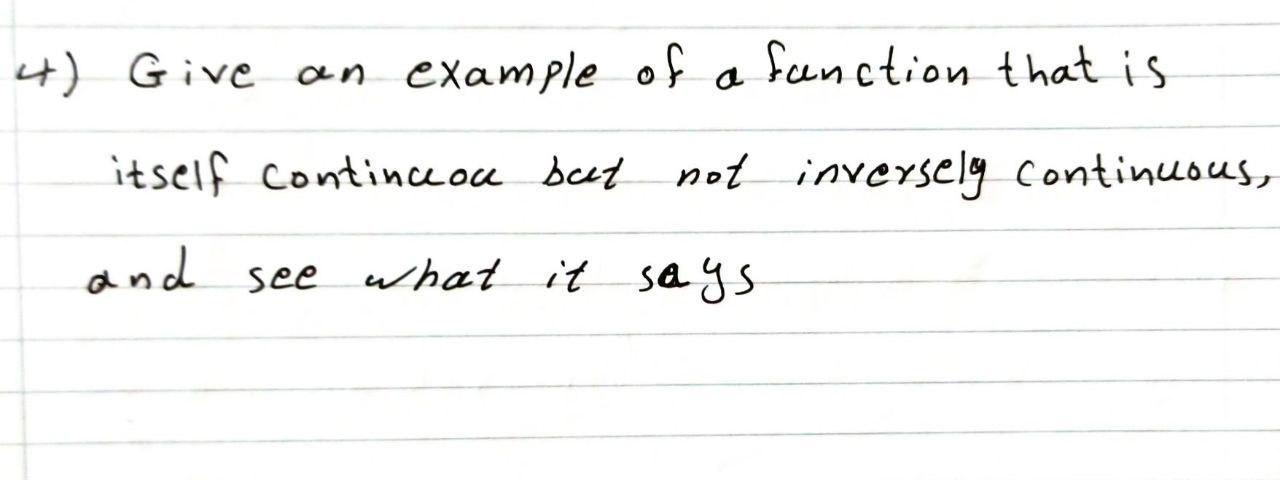 4) Give an example of a function that is
itself continuou but not inversely continuous,
and see what it says